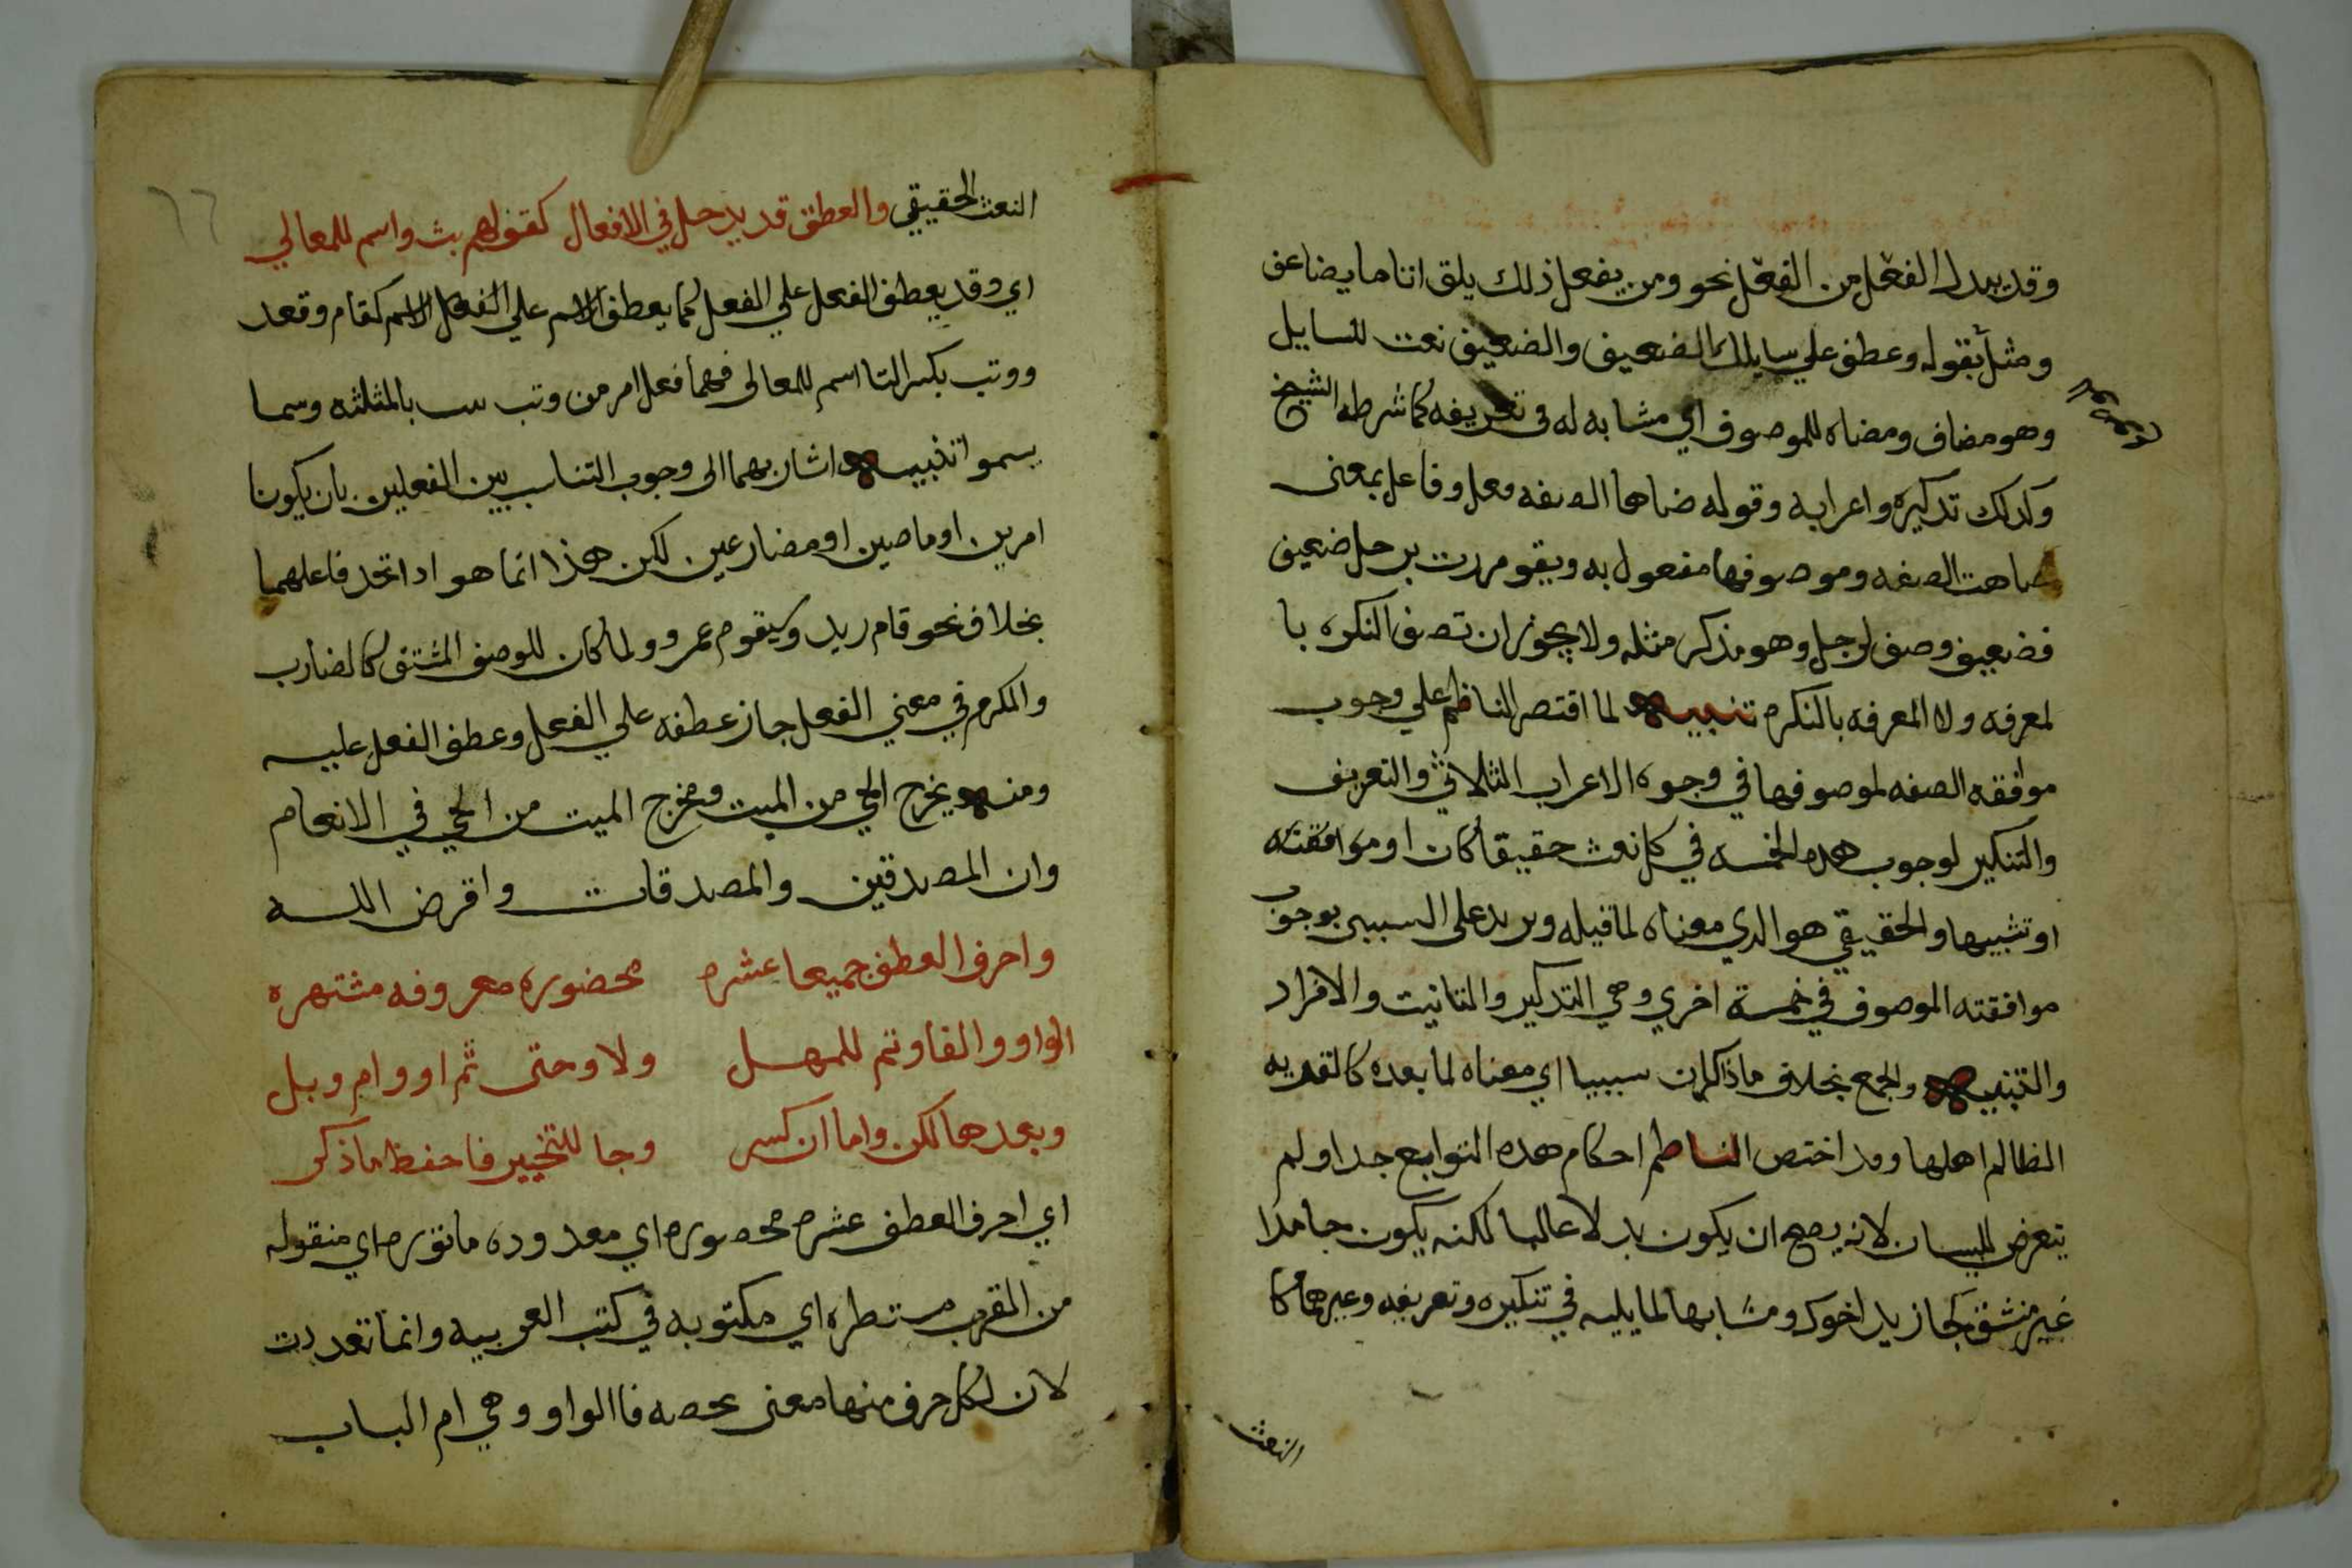 وقد يبدل الفعل من الفعل نحو ومن يفعل ذلك يلق اثاما يضاعف
ومثل بقوله وعطف علي سايلك الضعيف والضعيف نعت للسايل
وهو مضاف ومضاه للموصوف اي مشابه له في تعريفه كما شرطه الشيخ
وكدلك تدكيره واعرابه وقوله ضاها الصفه فعل وفاعل بمعنى
ضاهت الصفه وموصوفها مفعول به ويقو مررت برجل ضعيف
فضعيف وصف لرجل وهو مذكر مثله ولا يجوز ان تصف النكره با
لمعرفه ولا المعرفه بالنكره تنبيه لما اقتصر الناظم علي وجوب
موافقه الصفه لموصوفها في وجوه الاعراب الثلاثة والتعريف
والتنكير لوجوب هده الخمسه في كل نعت حقيقا كان او موافقته
او تشبيها والحقيقي هو الدي معناه لما قبله ويريد على السببى بوجوب
موافقته الموصوف في خمسة اخري وهي التدكير والتانيت والافراد
والتنبيه والجمع بخلاف ماذا كان سببيا اي معناه لما بعده كالقريه
الظالم اهلها وقد اختص الناظم احكام هده التوابع جدا ولم
يتعرض للبيان لانه يصح ان يكون بدلا غالبا لكنه يكون جامدا
غير مشتق كجا زيد اخوك ومشابها لما يليه في تنكيره وتعريفه وغيرهما كا
النعت
٦٦
النعت الحقيقي والعطف قد يدخل في الافعال كقولهم بث واسم للمعالي
اي وقد يعطف الفعل علي الفعل كما يعطف الاسم علي الفعل الاسم كقام وقعد
ووتب بكسر التا اسم للمعالى فهما فعل امر من وتب يتب بالمثلثه وسما
يسموا تنبيه اشار بهما الى وجوب التناسب بين الفعلين بان يكونا
امرين او ماصين او مضارعين لكن هذا انما هو ادا اتحد فاعلهما
بخلاف نحو قام زيد ويقوم عمرو ولما كان للوصف المشتق كالضارب
والمكرم في معني الفعل جاز عطفه علي الفعل وعطف الفعل عليه
ومنه يخرج الحي من الميت ومخرج الميت من الحي في الانعام
وان المصدقين والمصدقات واقرض الله
واحرف العطف جميعا عشره محضوره معروفه مشتهره
الواو والفا وتم للمهل ولا وحتى ثم او وام وبل
وبعدها لكن واما ان كسر وجا للتخيير فاحفظ ماذكر
اي احرف العطف عشره محصوره اي معدوده ماتوره اي منقوله
من المقرب مستطره اي مكتوبه في كتب العربيه وانما تعددت
لان لكل حرف منها معنى يخصه فاالواو وهي ام الباب